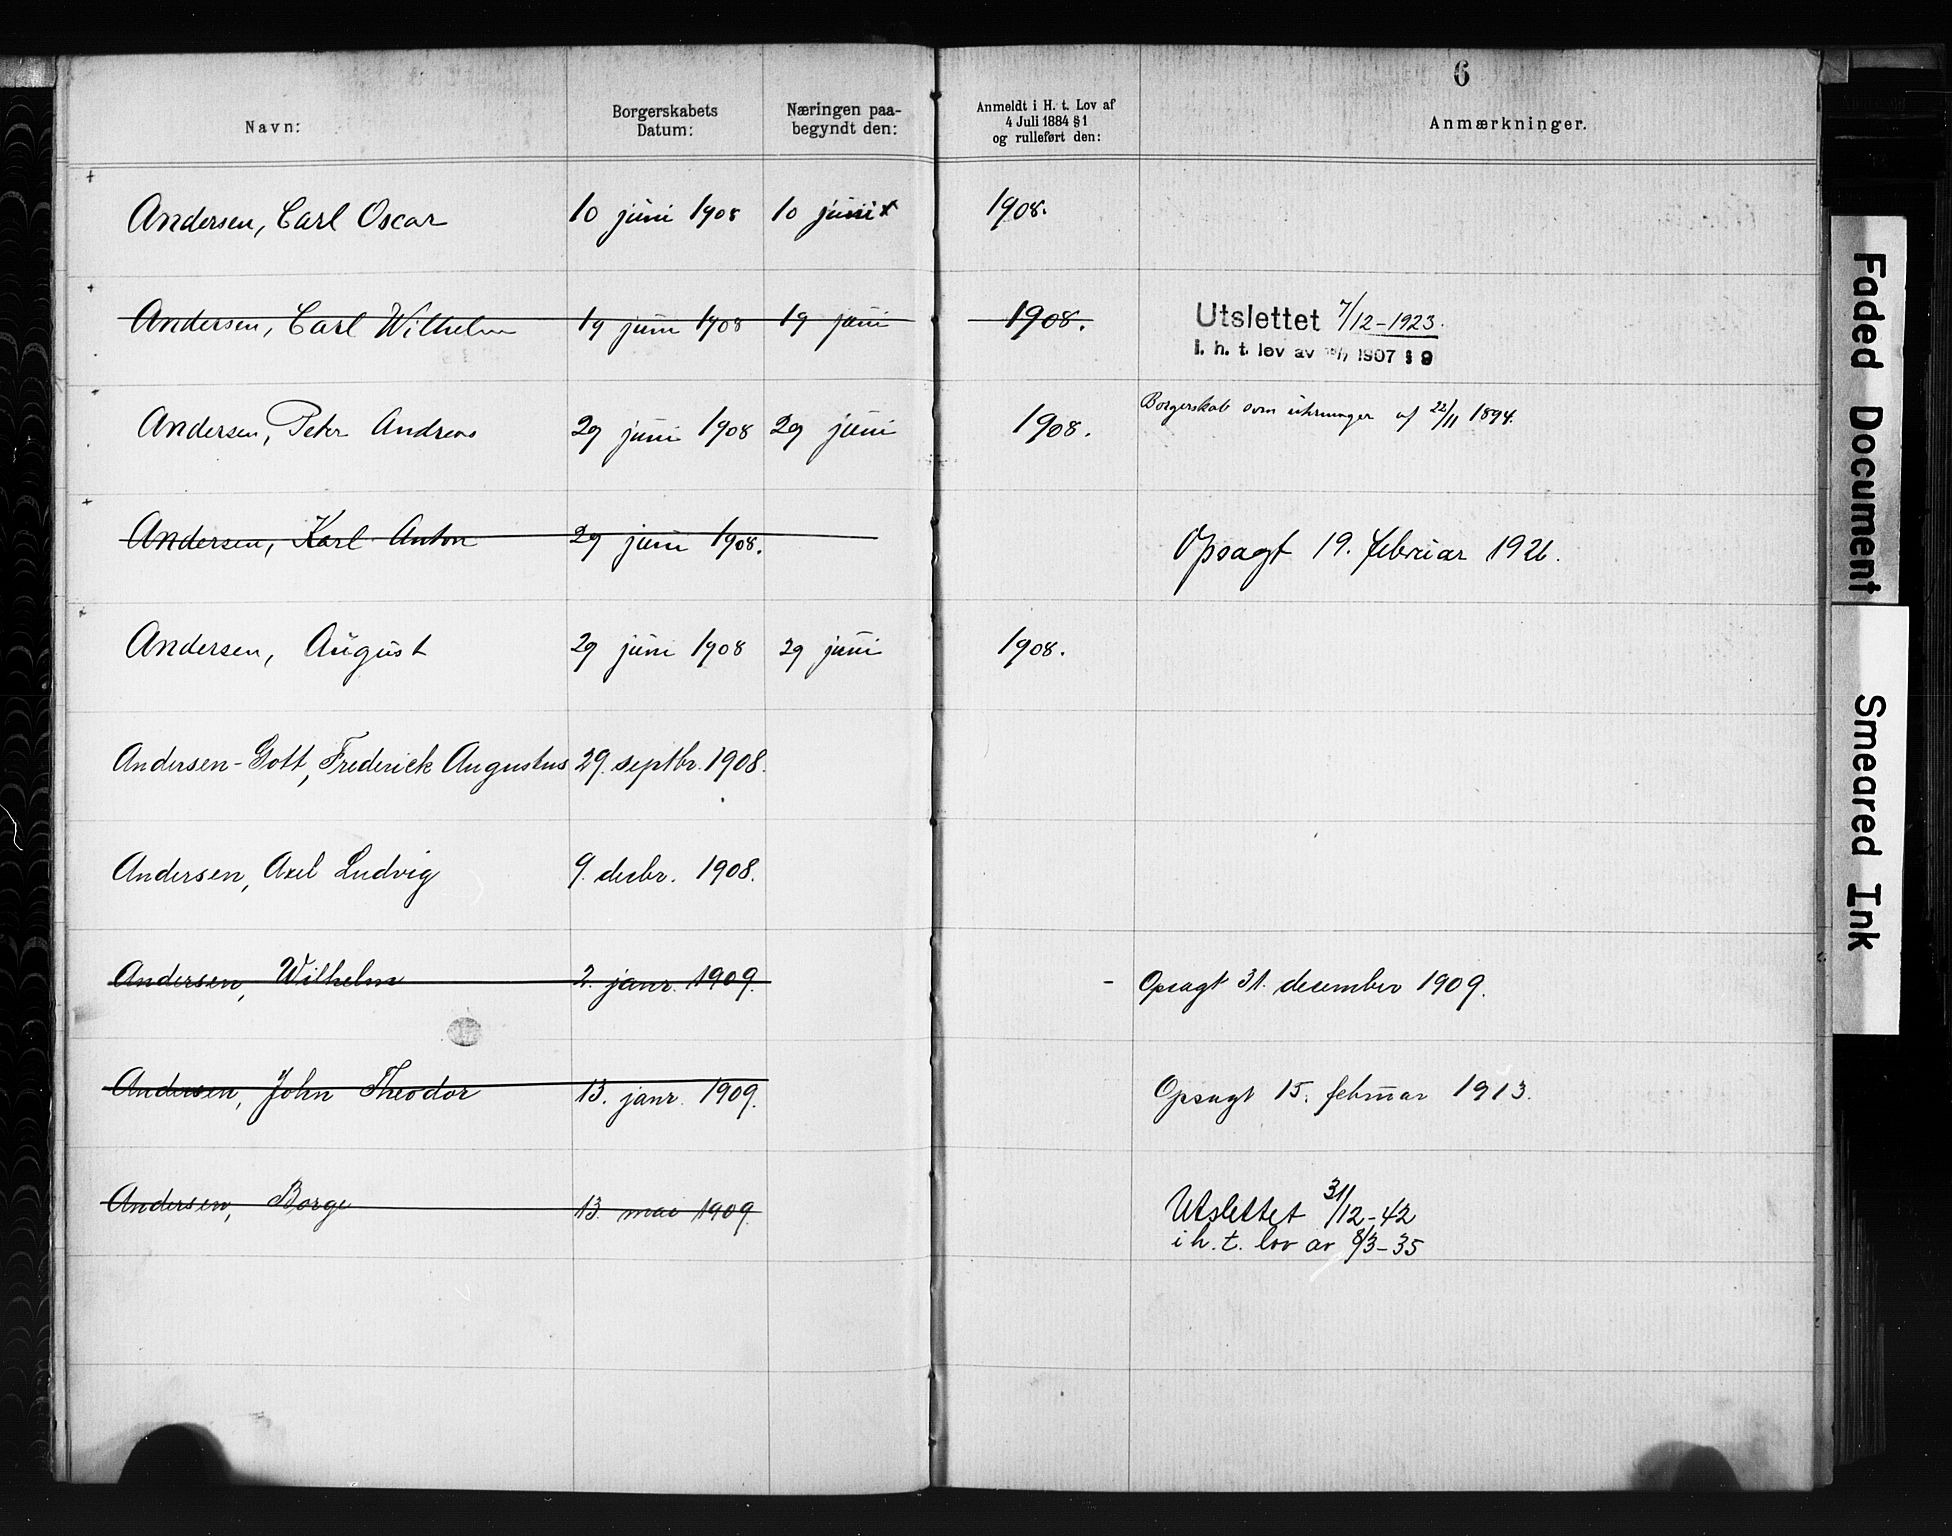 6
Navn:
Borgerskabets Datum:
Næringen paa-begyndt den:
Anmeldt i H. t. Lov af 4 Juli 1884 § 1 og rulleført den:
Anmærkninger.
Andersen, Carl Oscar 10 juni 1908 10 juni 1908.
Andersen, Carl Wilhelm 19 juni 1908 19 juni 1908. Utslettet 7/12-1923.
I. h. t. lov av 1907 § 9
Andersen, Peter Andreas 29 juni 1908 29 juni 1908. Borgerskab som af 22/11 1894.
Andersen, Karl Anton 29 juni 1908. Opsagt 19. februar 1926.
Andersen, August 29 juni 1908 29 juni 1908.
Andersen-Gott, Frederick Augustus 29. septbr. 1908.
Andersen, Axel Ludvig 9. desbr. 1908.
Andersen, Wilhelm 2. janr. 1909. - Opsagt 31. december 1909.
Andersen, John Theodor 13. janr. 1909. Opsagt 15. februar 1913.
Andersen, Borge 13. mai 1909. Utslettet 31/12-42
i h. t. lov av 8/3-35
Faded Document
Smeared Ink